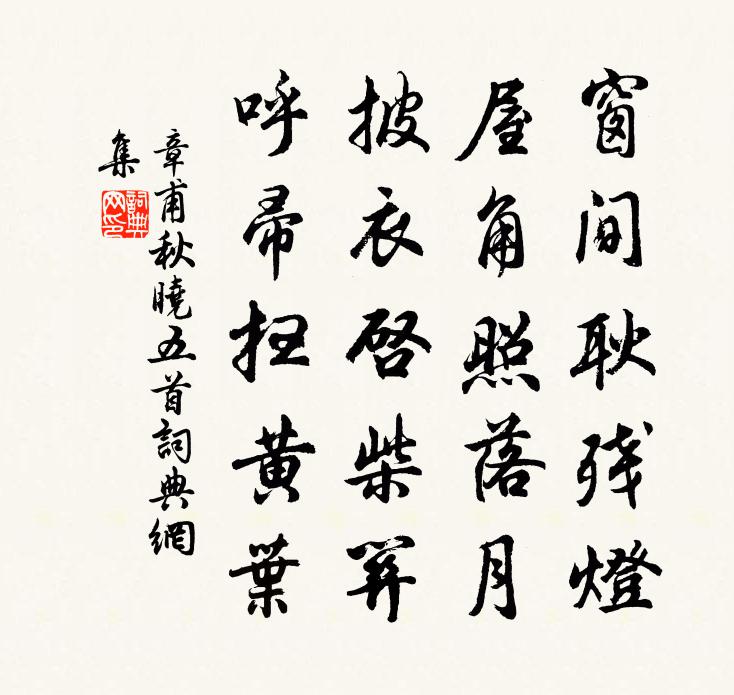 窗间耿残燈
屋角照落月
披衣啓柴笄
呼帚扫黄葉
章甫秋曉五首詞典網
集
詞典
网印